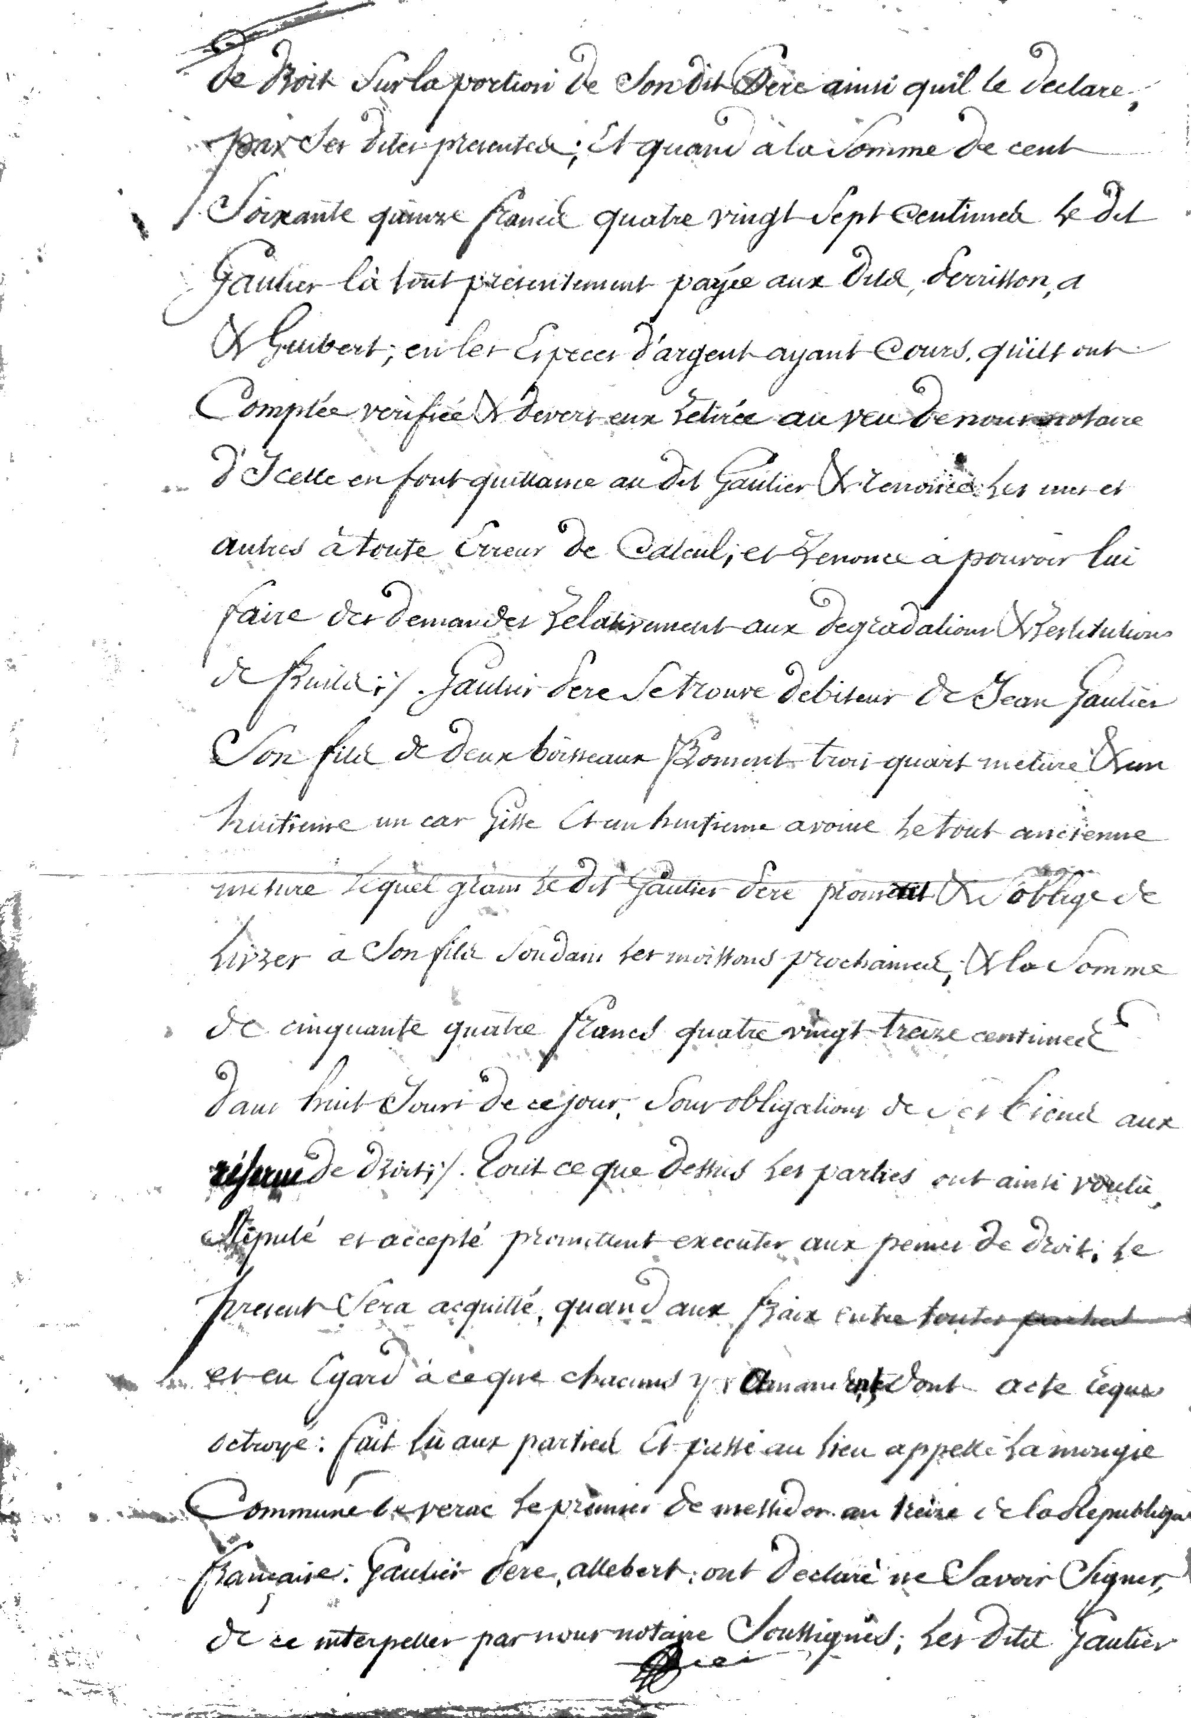 de droit Sur la portion de Son dit Pere ainsi quil le declare,
par Ses dites presentes; Et quand à la Somme de cent
Soixante quinze francs quatre vingt Sept Centimes Le dit
Gautier là tout presentement payée aux dits, Perrisson,
& Guibert; en les Especes d'argent ayant Cours. quils ont
Comptée verifiée & devers eux Retirée au veu de nous notaire
d'Icelle en font quittance au dit Gautier & renonce Les uns et
autres à toute Erreur de Calcul; et Renonce a pouvoir lui
faire des demandes Relativement aux degradations & Restitutions
de fruits ;/. Gautier Pere Se trouve debiteur de Jean Gautier
Son fils de deux boisseaux froment trois quart meture & un
huitieme un car Gisse Et un huitieme avoine Le tout ancienne
mesure Lequel grain Le dit Gautier Pere promet & S'oblige de
Livrer à Son fils Soudain Les moissons prochaines, & la Somme
de cinquante quatre francs quatre vingt treize centimes
dans huit Jours de ce jour, Sous obligations de Ses biens aux
réserve de droit ;/. Tout ce que dessus Les parties ont ainsi voulu,
Stipulé et accepté promettent executer aux peines de droit; Le
present Sera acquitté, quand aux fraix entre toutes parties
et eu Egard à ce que chacuns y amandent, dont acte Requis
octroyé: fait Lu aux parties Et passé au Lieu appellé La
Commune de verac Le premier de messidor an treize de la Republique
française: Gautier Pere, allebert; ont declaré ne Savoir Signer,
de ce interpeller par nous notaire Soussignés; Les dits Gautier